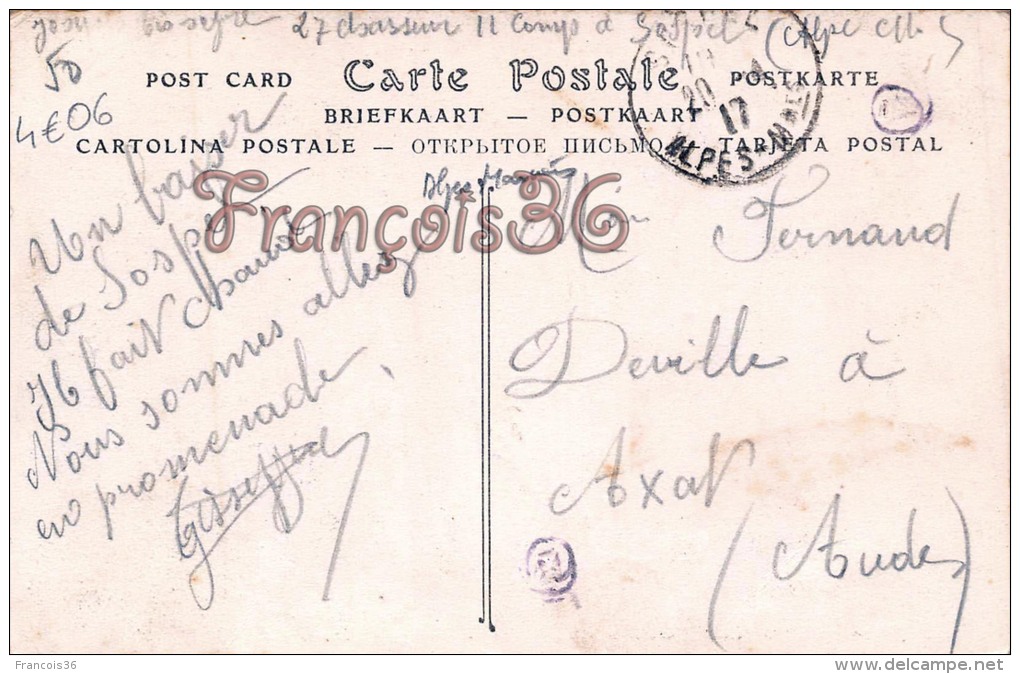 27 chasseur 11 Comp à Sospel (Alpe M)
50
4€06
POST CARD Carte Postale POSTKARTE
BRIEFKAART — POSTKAART
CARTOLINA POSTALE — ОТКРЫТОЕ ПИСЬМО — TARJETA POSTAL
20
17
ALPES-MMES
François36
Un basser
de Sospel
Il fait chaud
Nous sommes allez
en promenade
Fernand
Deville à
Axat
(Aude)
François36
www.delcampe.net